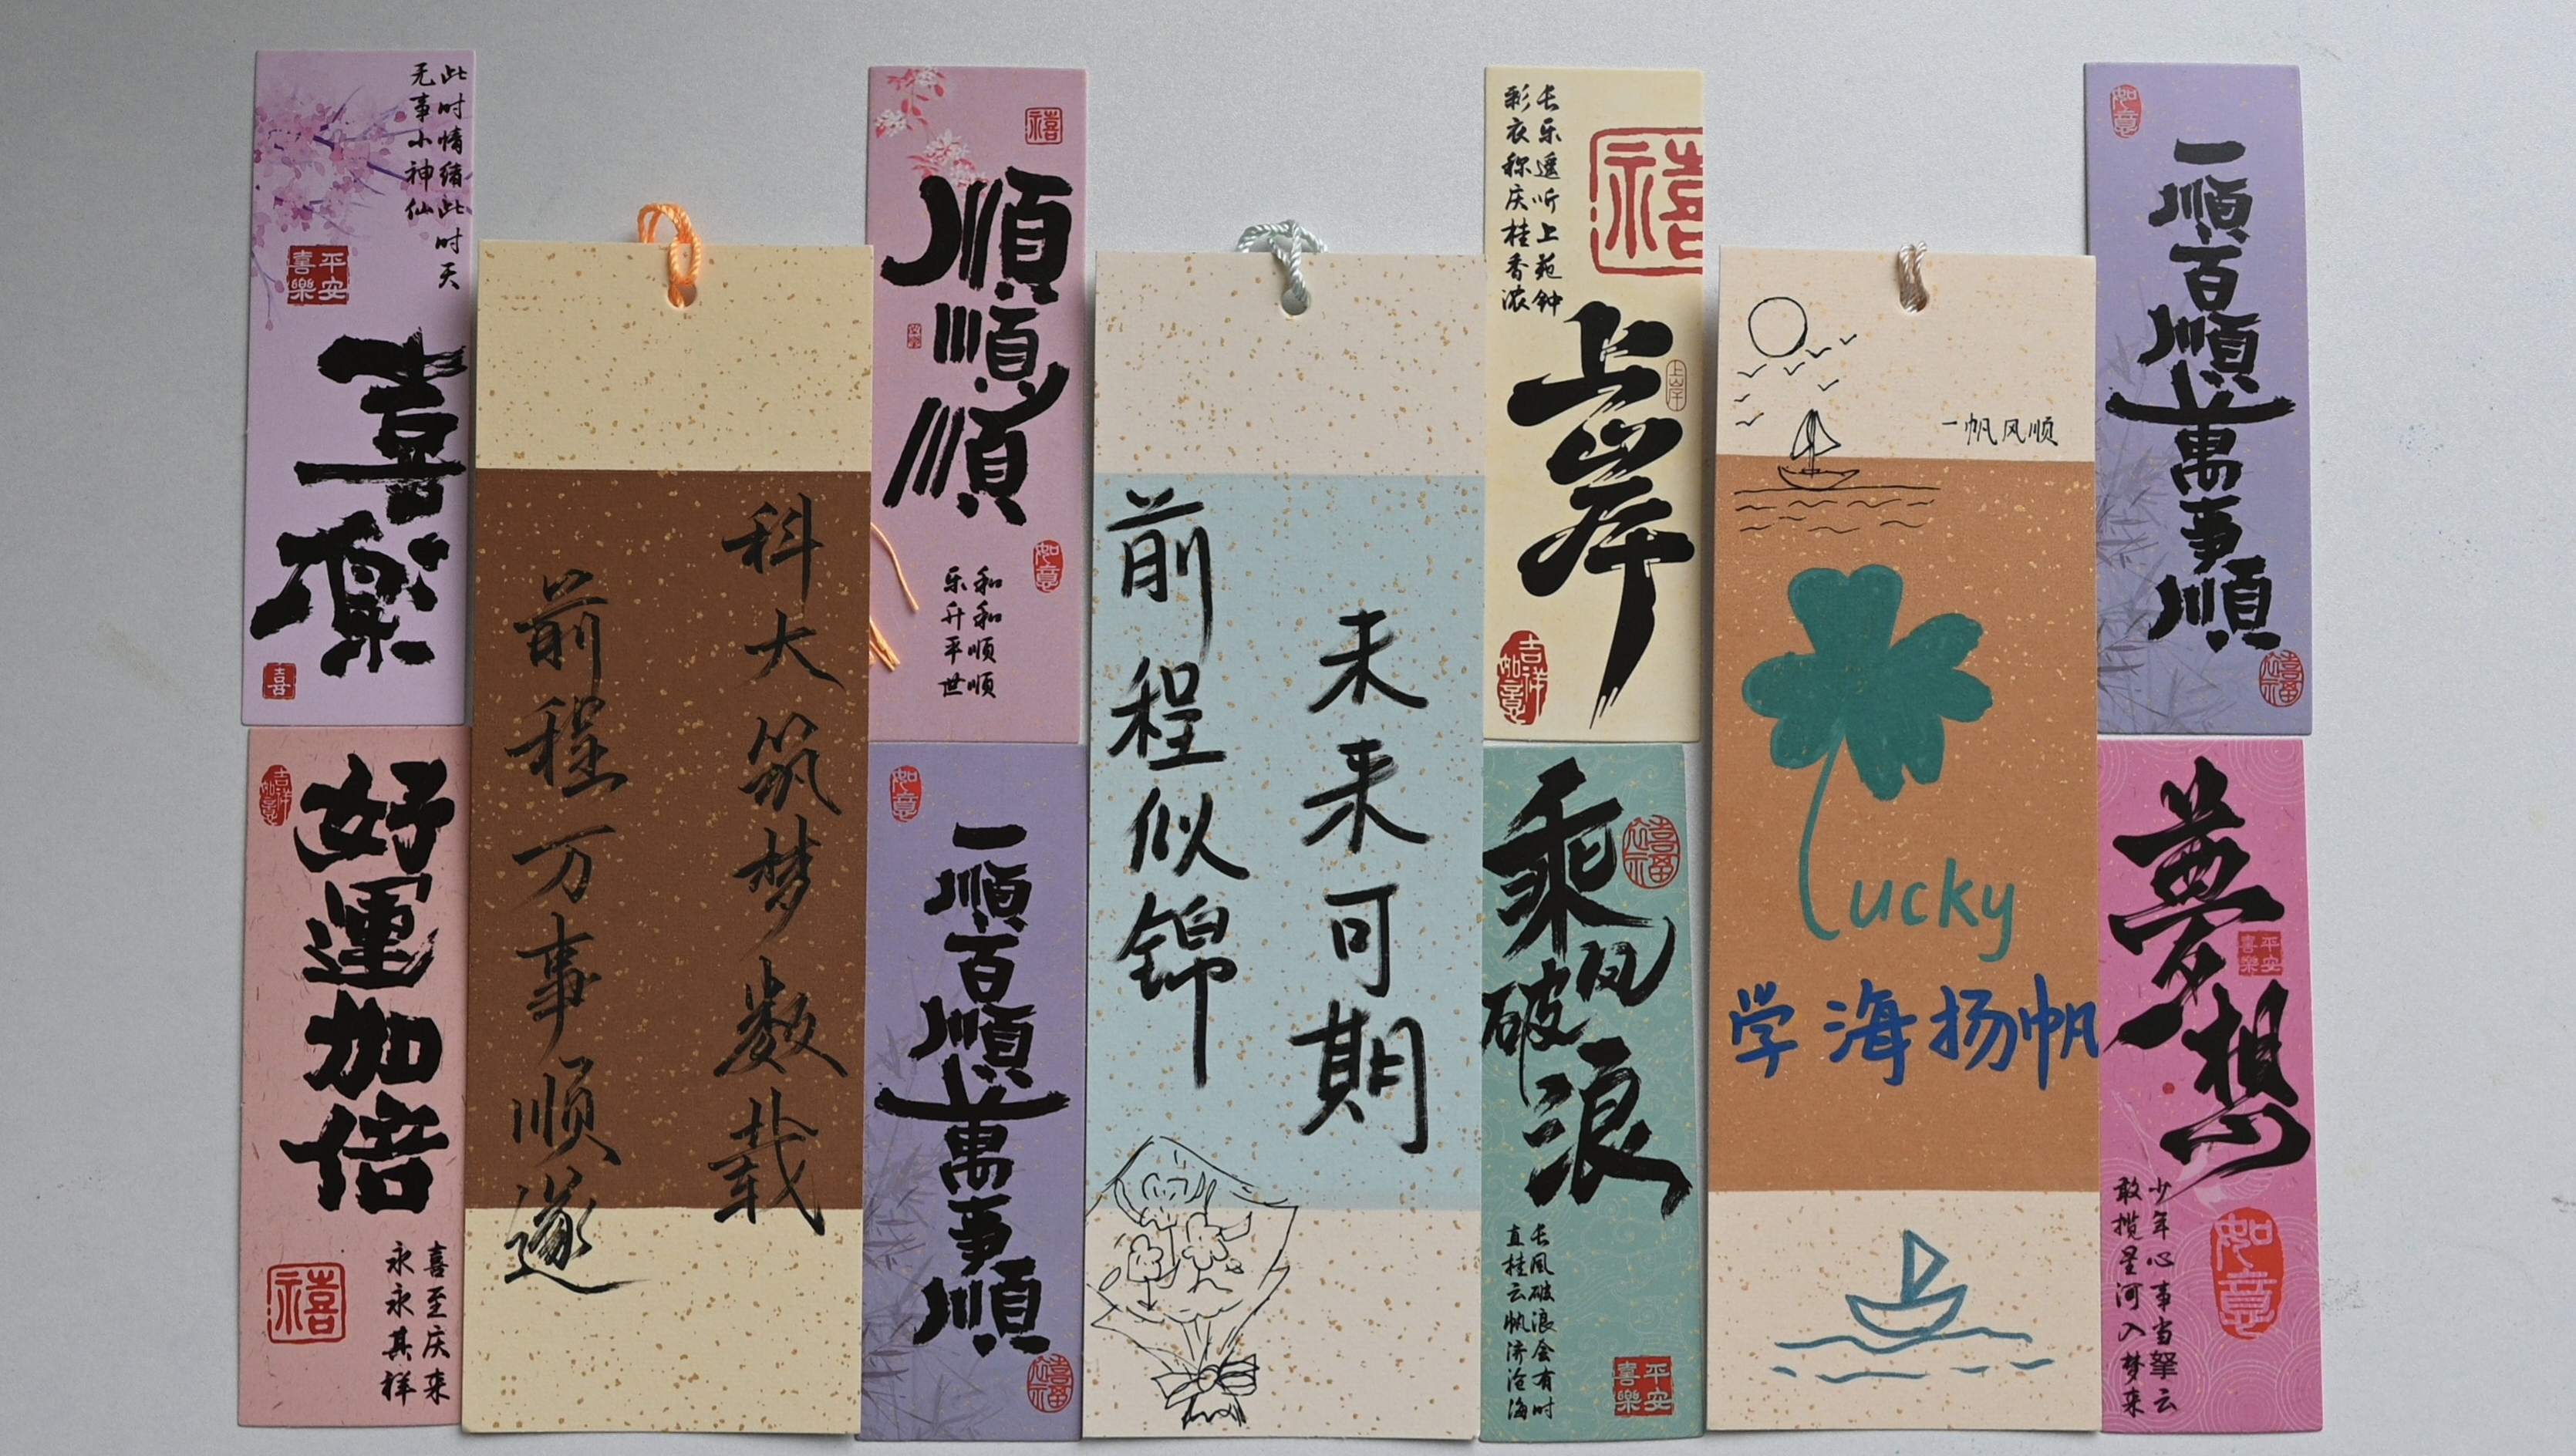 此时情绪此时天
无事小神仙
平安
喜樂
喜樂
喜
吉祥
如意
好運加倍
喜至庆来
永永其祥
禧
科大筑梦数载
前程万事顺遂
禧
順順順
如意
和和顺顺
乐升平世
如意
一順百順萬事順
禧福
未来可期
前程似锦
长乐遥听上苑钟
彩衣称庆桂香浓
禧
上岸
上岸
吉祥
如意
乘风破浪
禧福
长风破浪会有时
直挂云帆济沧海
平安
喜樂
一帆风顺
Lucky
学海扬帆
如意
一順百順萬事順
禧福
夢想
平安
喜樂
少年心事当拏云
敢揽星河入梦来
如意